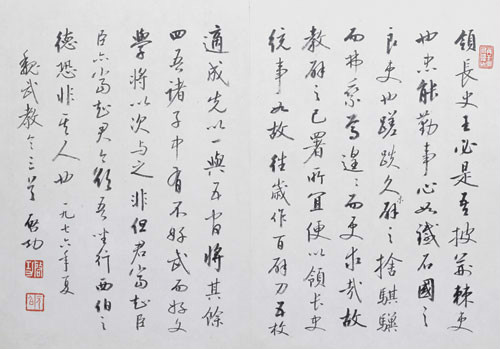 領長史王必是吾披荊棘吏
也忠能勤事心如鐵石國之
良吏也蹉跌久未辟之捨騏驥
而弗乘焉遑遑而更求哉故
教辟之已署所宜便以領長史
統事如故 往歲作百辟刀五枚
適成先以一與五官將其餘
四吾諸子中有不好武而好文
學將以次与之 非但君當知臣
臣亦當知君今欲吾坐行西伯之
德恐非其人也 一九七六年夏
魏武教令三首 啟功